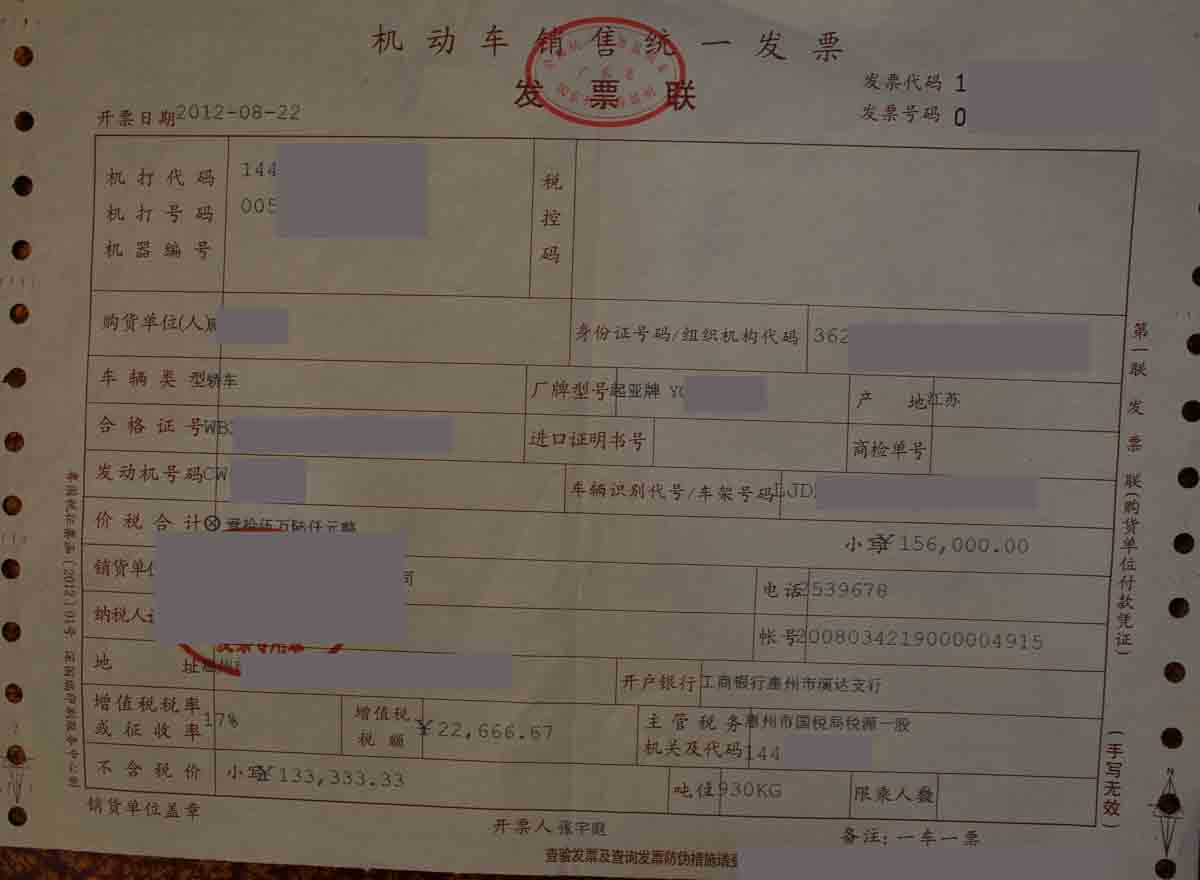 机动车销售统一发票
发票联
发票代码 1
发票号码 0
开票日期 2012-08-22
机打代码 144
机打号码 005
机器编号
税控码
购货单位(人)
身份证号码/组织机构代码 362
车辆类型 轿车
厂牌型号 起亚牌 YQ
产地 江苏
合格证号 WB
进口证明书号
商检单号
发动机号码 CW
车辆识别代号/车架号码 LJD
价税合计 ⊗ 壹拾伍万陆仟元整
小写 ¥156,000.00
销货单位 司
电话 2539678
纳税人
帐号 2008034219000004915
发票专用章
地址 惠州
开户银行 工商银行惠州市演达支行
增值税税率或征收率 17%
增值税税额 ¥22,666.67
主管税务机关及代码 惠州市国税局税源一股 144
不含税价 小写 ¥133,333.33
吨位 930KG
限乘人数
销货单位盖章
开票人 张宇庭
备注:一车一票
查验发票及查询发票防伪措施请登
第一联 发票联(购货单位付款凭证)
(手写无效)